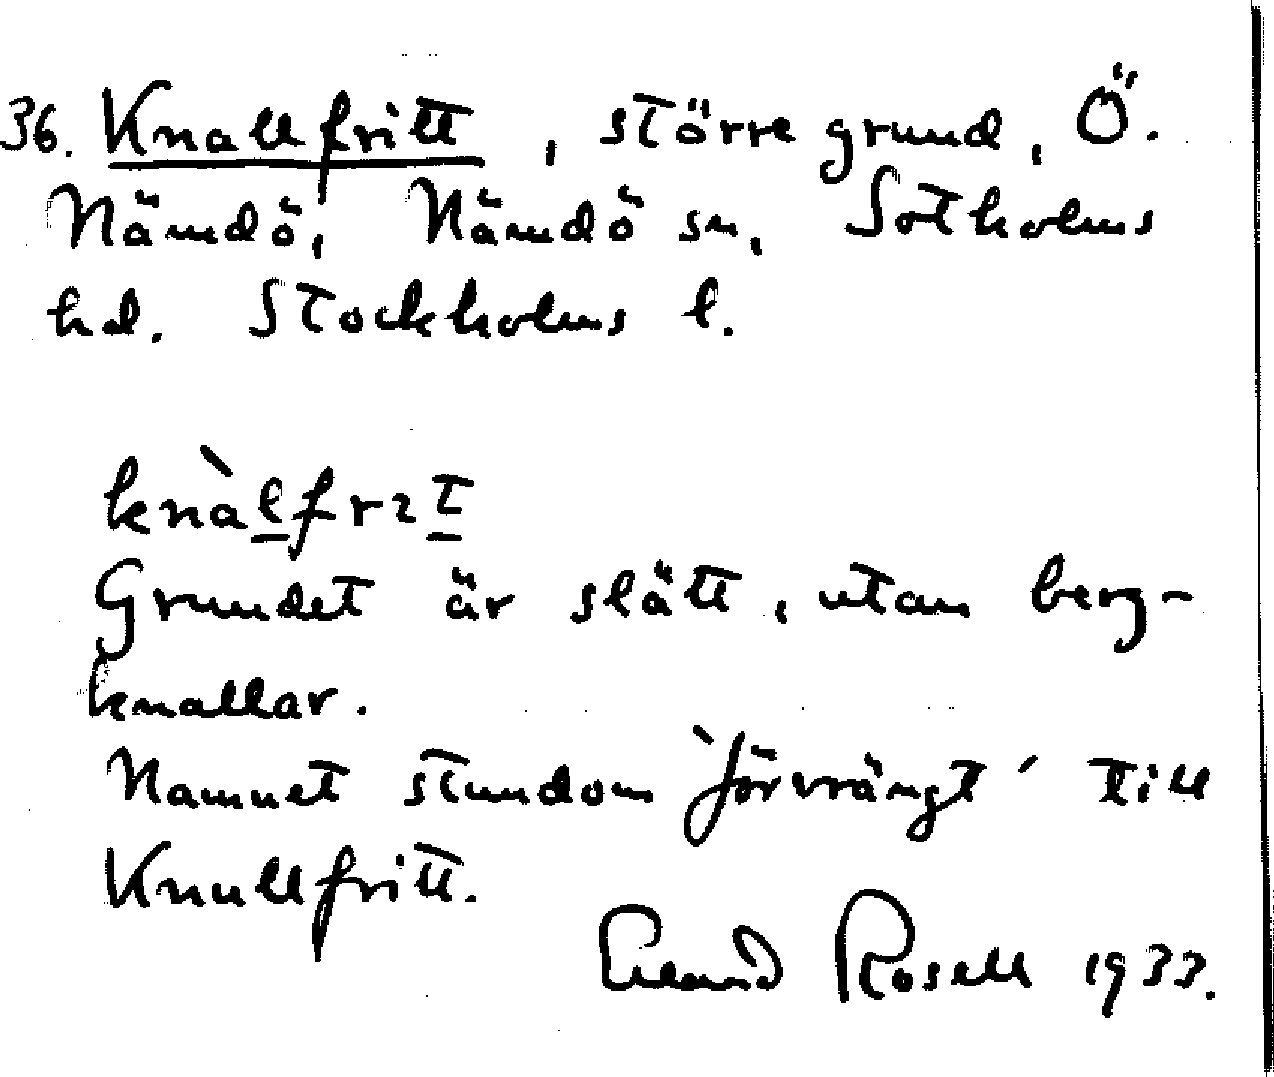 36. Knallfritt, större grund, Ö.
Nämdö, Nämdö sn, Sotholms
hd. Stockholms l.
knàlfrıt
Grundet är slätt, utan berg-
knallar.
Namnet stundom `förvrängt´ till
Knullfritt.
Erland Rosell 1933.